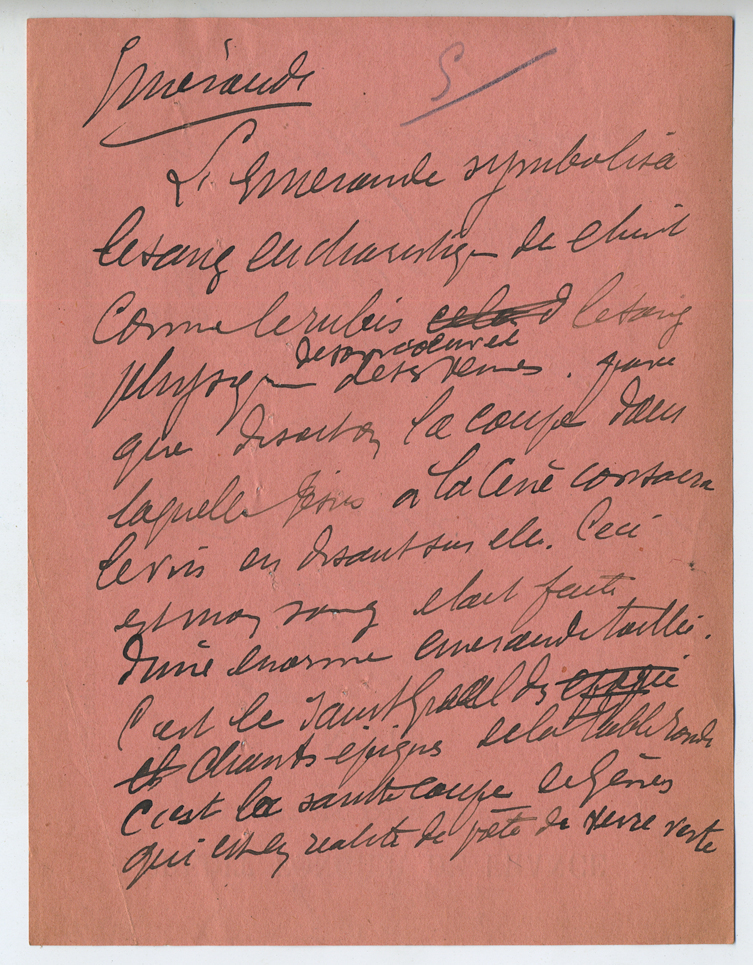 Emeraude
5
L'Emeraude symbolisa
le sang eucharistique du Christ
Comme le rubis le sang
physique de ses veines. parce
que disait on la coupe dans
laquelle Jésus à la Cène consacra
le vin en disant sur elle. Ceci
est mon sang etait faite
d'une enorme emeraude taillée.
C'est le saint Graal des
chants épiques de la Table Ronde
C'est la sainte coupe de Gênes
qui est en realité de pâte de verre verte